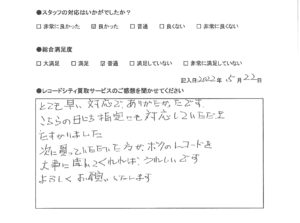 ●スタッフの対応はいかがでしたか？
□ 非常に良かった ☑ 良かった □ 普通 □ 良くない □ 非常に良くない
●総合満足度
□ 大満足 □ 満足 ☑ 普通 □ 満足していない □ 非常に満足していない
記入日2022年5月22日
●レコードシティ買取サービスのご感想を聞かせてください
とても早い対応でありがたかったです。
こちらの日にち指定にも対応していただき
たすかりました
次に買っていただいた方がボクのレコードを
大事に聴いてくれれば、うれしいです
よろしくお願いいたします